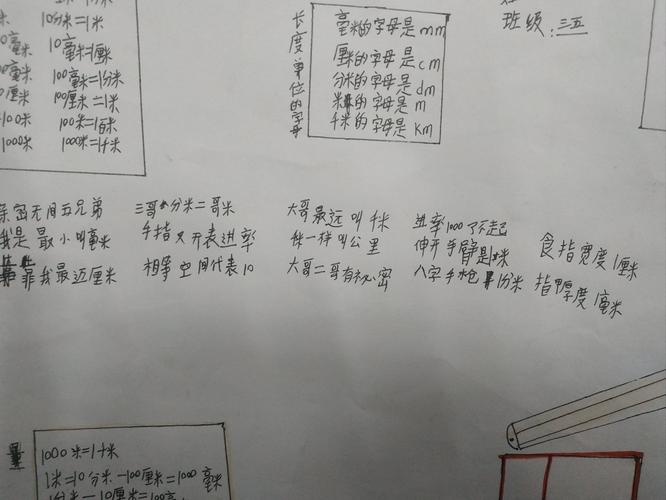 班级：三五
10分米=1米
10毫米=1厘米
100毫米=1分米
100厘米=1米
100米=1百米
1000米=1千米
长度单位的字母
毫米的字母是mm
厘米的字母是cm
分米的字母是dm
米的字母是m
千米的字母是km
亲密无间五兄弟
我是最小叫毫米
我最迈厘米
三哥分米二哥米
手指叉开表进率
相争空间代表10
大哥最远叫千米
一样叫公里
大哥二哥有秘密
进率1000了不起
伸开手臂是1米
八字手枪1分米
食指宽度1厘米
指甲厚度1毫米
1000米=1千米
1米=10分米=100厘米=1000毫米
1分米=10厘米=100毫